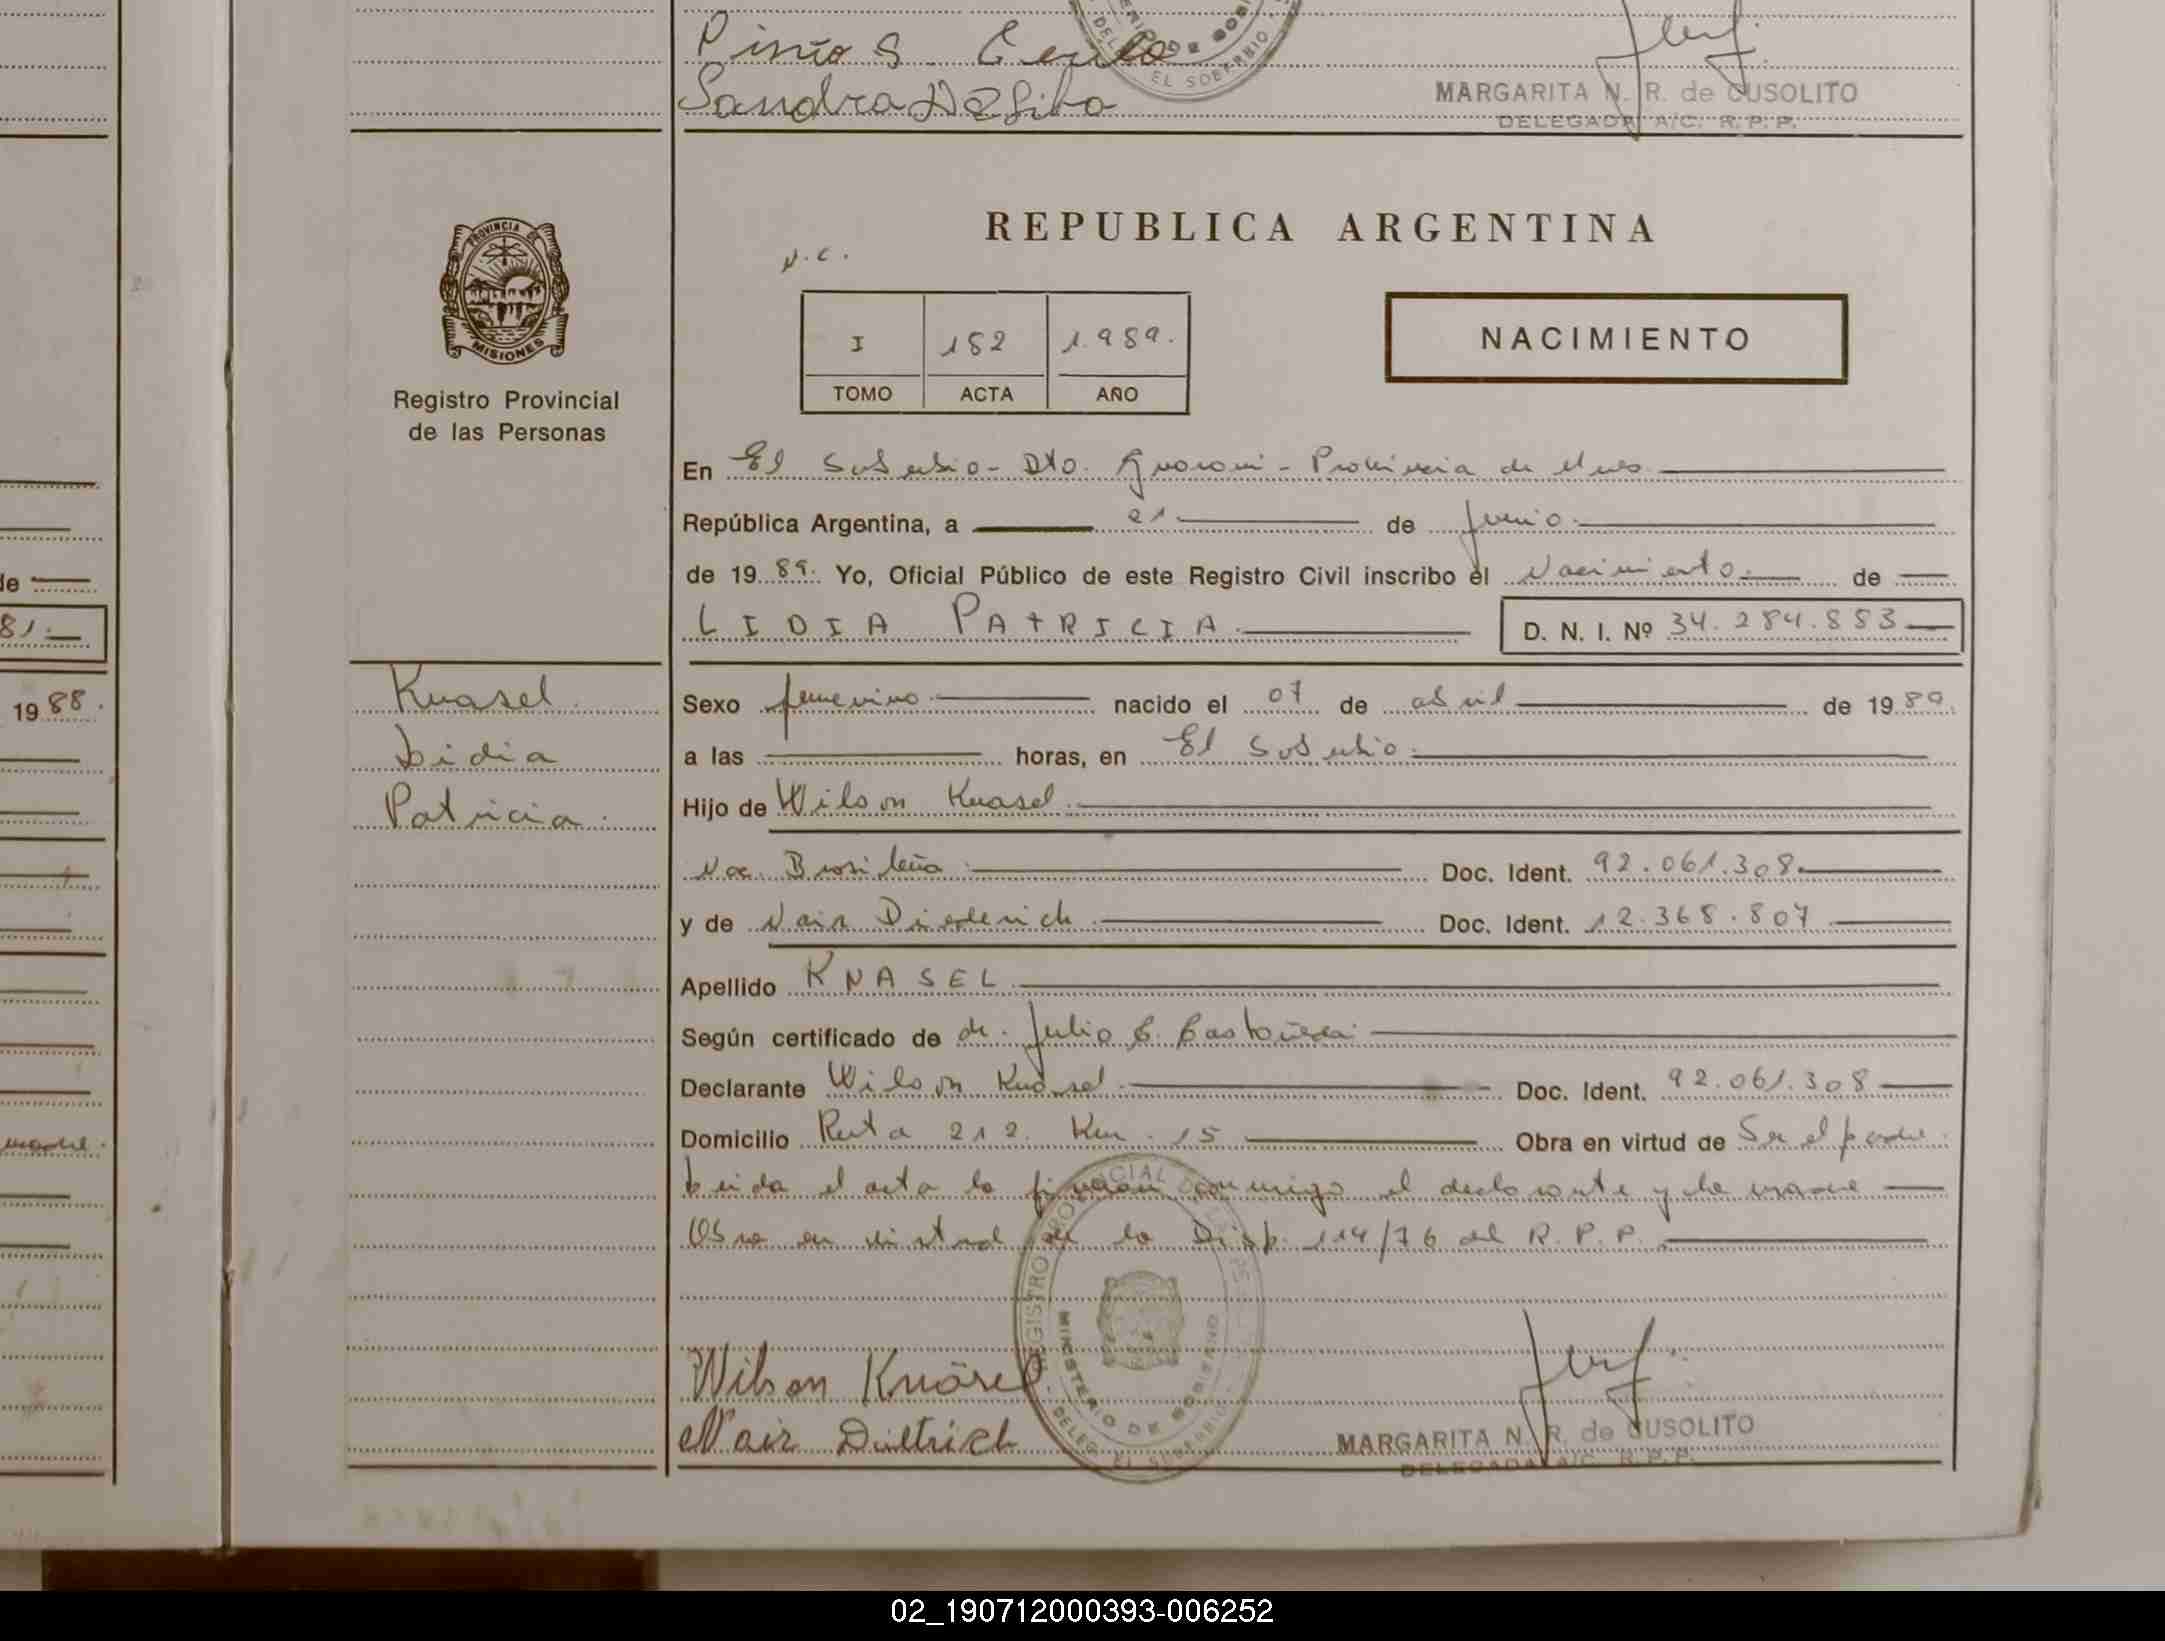 Pinto S. Cerilo
Sandra Da Silva
MARGARITA N. R. de CUSOLITO
DELEGADA A/C. R. P. P.
EL SOBERBIO
REPUBLICA ARGENTINA
N.C.
PROVINCIA DE
MISIONES
Registro Provincial
de las Personas
I 152 1.989.
TOMO ACTA AÑO
NACIMIENTO
En El Soberbio - Dto. Guarani - Provincia de Mnes.
República Argentina, a 21 de junio
de 1989. Yo, Oficial Público de este Registro Civil inscribo el Nacimiento de
LIDIA PATRICIA D. N. I. Nº 34.284.883
Knasel
Lidia
Patricia
Sexo femenino nacido el 07 de abril de 1989.
a las horas, en El Soberbio.
Hijo de Wilson Knasel.
Nac. Brasileña. Doc. Ident. 92.061.308
y de Nair Diederich Doc. Ident. 12.368.807
Apellido KNASEL
Según certificado de dr. Julio C. Castañeda
Declarante Wilson Knasel Doc. Ident. 92.061.308
Domicilio Ruta 212. Km. 15 Obra en virtud de Ser el padre.
Leida el acta la firman conmigo el declarante y la madre
Obra en virtud de la Disp. 114/76 del R. P. P.
REGISTRO PROVINCIAL DE LAS PERSONAS
MINISTERIO DE GOBIERNO
DELEG. EL SOBERBIO
Wilson Knäsel
Nair Dietrich
MARGARITA N. R. de CUSOLITO
DELEGADA A/C. R. P. P.
de
81.
1988.
madre.
02_190712000393-006252